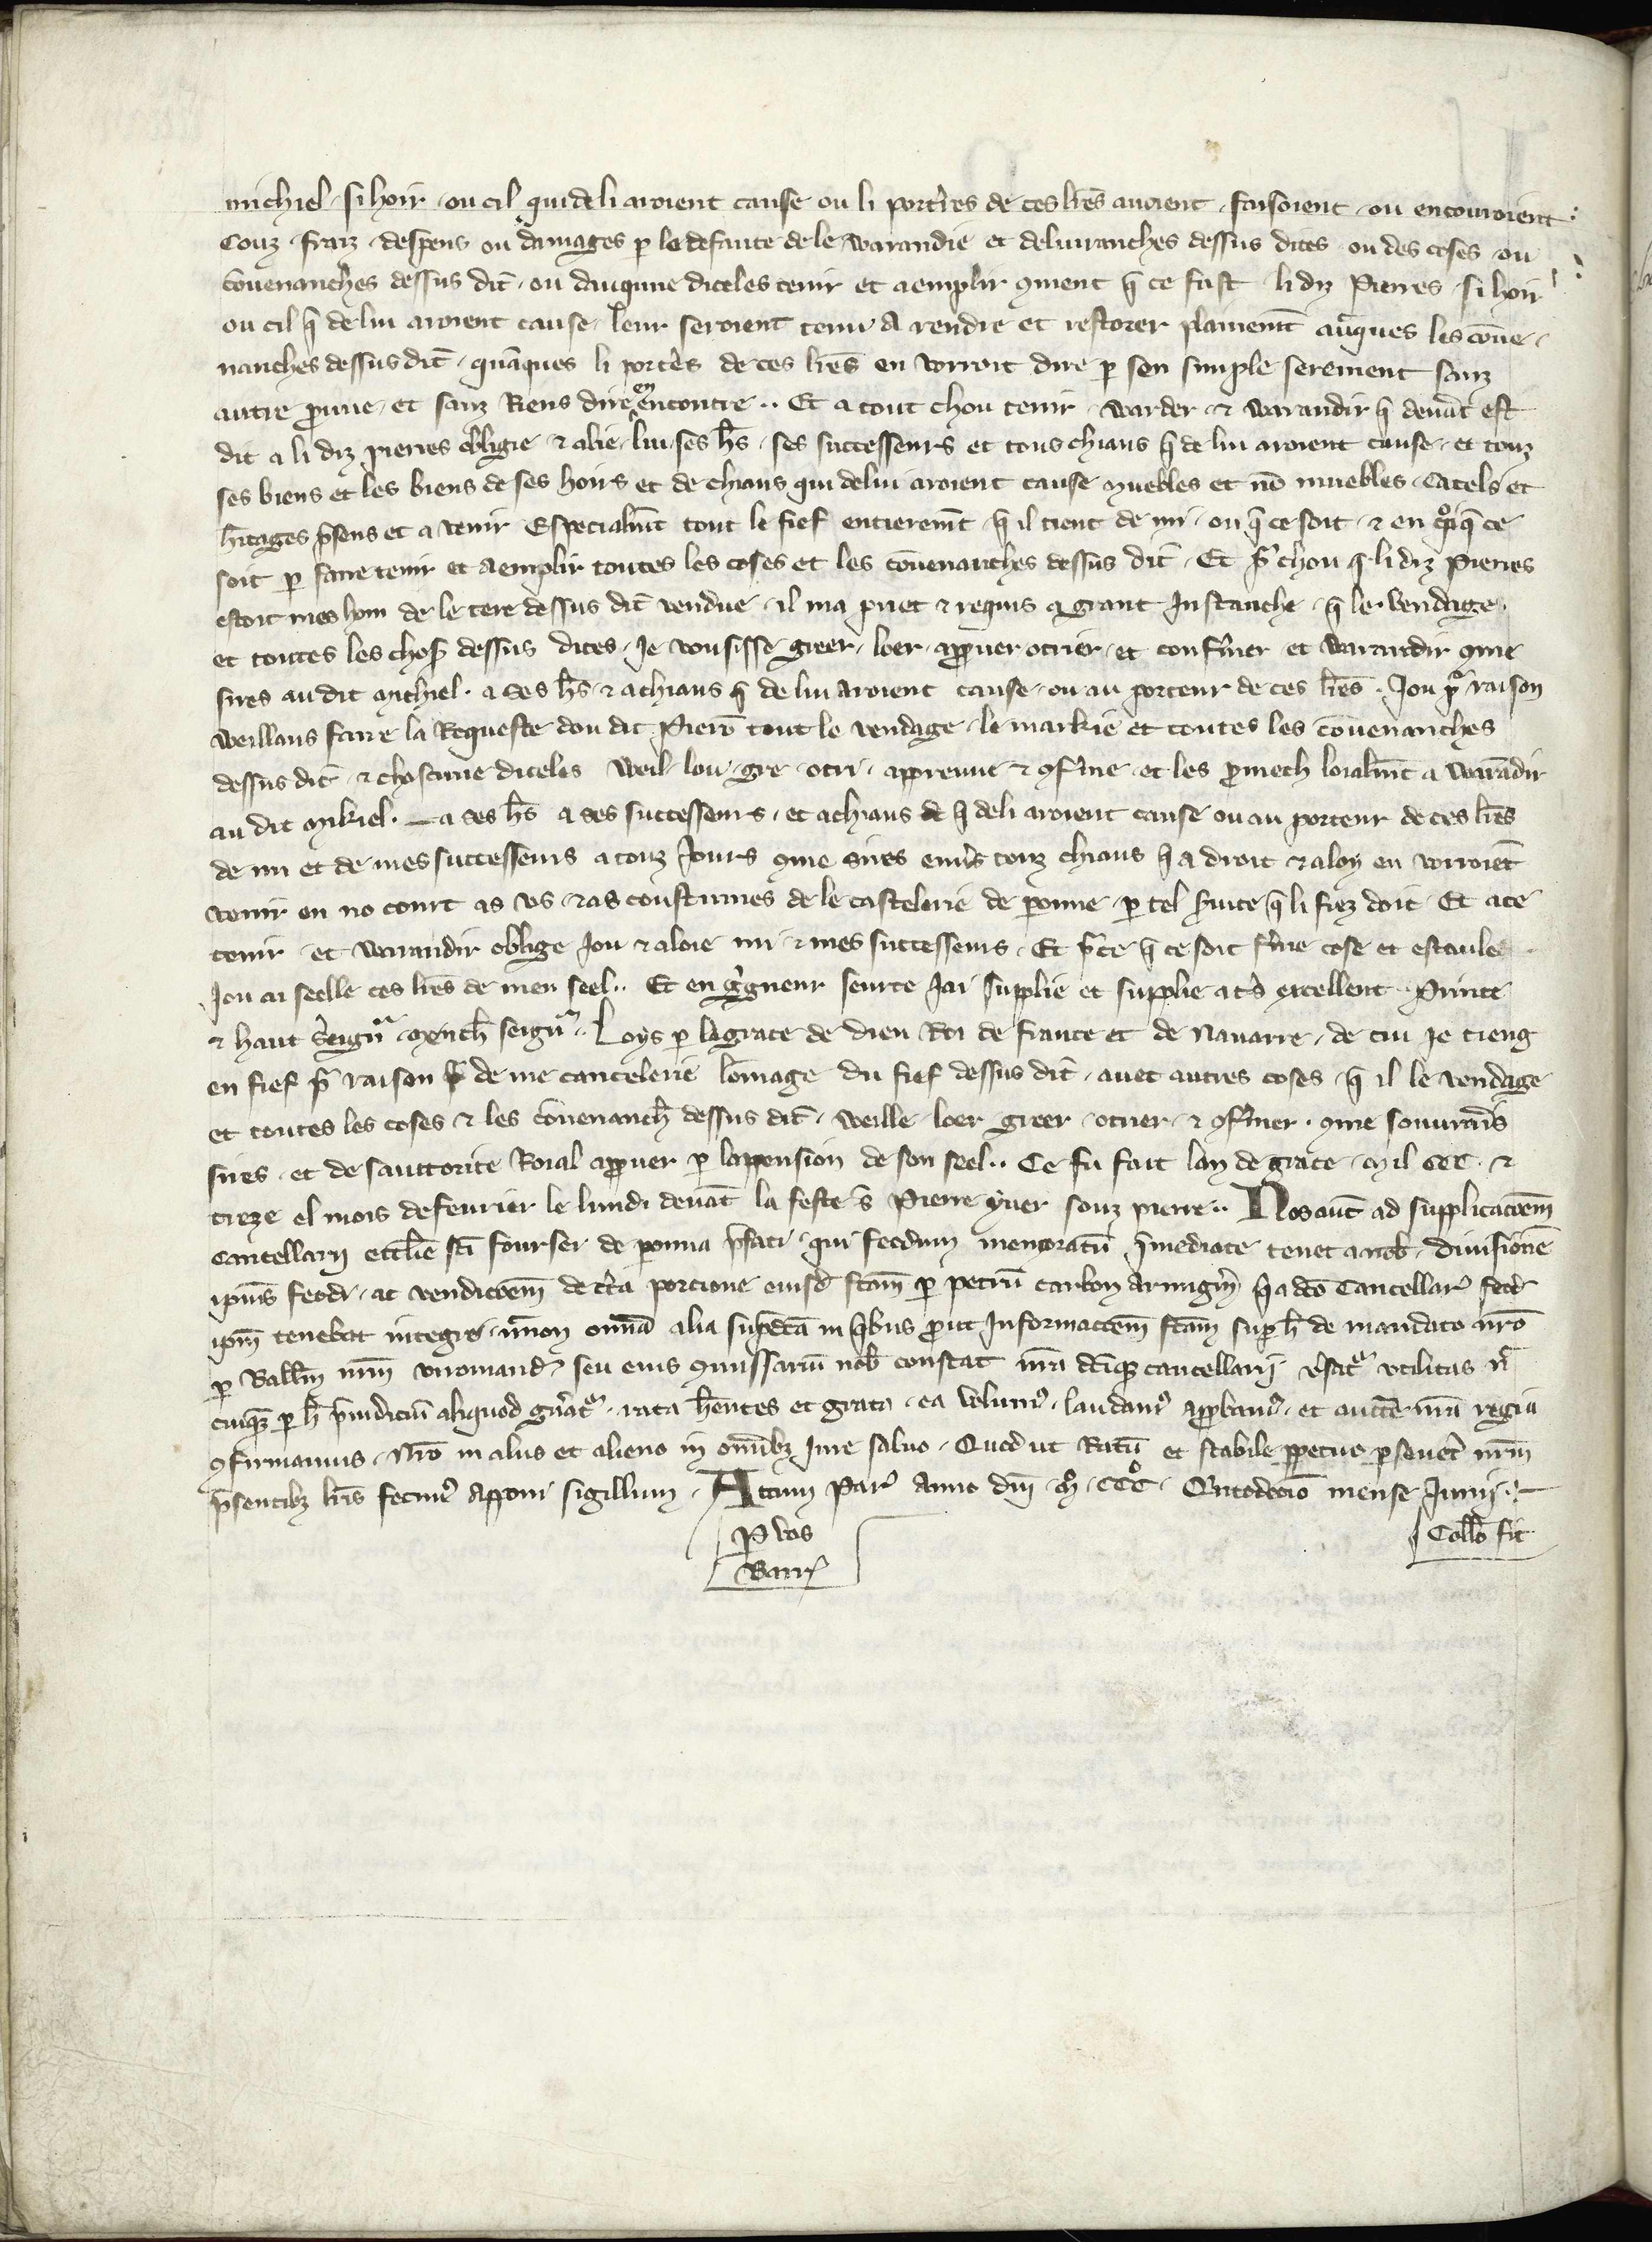 michiel · si hoir · ou cil qui de li aroient cause ou li portres de ces lr̃es auoient · faisoient · ou encouroient ·
Couz · fraiz · despens ou damages p le defaute de le warandie et deliuranches dessus dites · ou des coses · ou
co᷒uenanches dessus dit̃ · ou dauqune diceles tenir et aemplir 9ment q̃ ce fust · li diz Pierres · si hoir
ou cil q̃ de lui aroient cause · leur seroient tenu a rendre et restorer plainem̃t auq̃ues les co᷒ue ·
nanches dessus dit̃ · quãques li port̃es de ces lr̃es en vorroit dire p sen simple serement sanz
autre p̃uue · et sanz Riens dire en encontre ·· Et a tout chou tenir · warder · ⁊ warandir q̃ deuãt est
dit a li diz pierres obligie · ⁊ alie · lui · ses h̃s · ses successeurs et tous chiaus q̃ de lui aroient cause · et touz
ses biens et les biens de ses hoirs et de chiaus qui de lui aroient cause muebles et nõ muebles · Catels et
h̃itages p̃sens et a venir Especialm̃t tout le fief entierem̃t · q̃ il tient de mi · ou q̃ ce soit · ⁊ en q̃oi q̃ ce
soit p faire tenir et aemplir toutes les coses et les co᷒uenanches dessus dit̃ · Et p̃ chou q̃ li diz Pierres
estoit mes hom de le tere dessus dit̃ vendue · il ma priet ⁊ requis a grant Instanche · q̃ le · vendage ·
et toutes les chos̃ dessus dites · Je vousisse greer · loer · app̃uer otrier · et conf̃mer et warandir 9me
sires au dit michiel · a ses h̃s · ⁊ a chiaus q̃ de lui aroient cause · ou au porteur de ces lr̃es · Jou p̃ raison
weillans faire la Requeste dou dit Pier̃ tout le vendage · le markie et toutes les co᷒uenanches
dessus dit̃ · ⁊ chascune diceles weil · lou · gre · otri · appreuue ⁊ 9f̃me · et les p̃mech loialm̃t a warãdir
au dit mikiel · — a ses h̃s a ses successeurs · et a chiaus de q̃ de li aroient cause ou au porteur de ces lr̃es
de mi et de mes successeurs a touz Jours 9me sires enũs touz chiaus q̃ a droit ⁊ a loy en vorroiẽt
venir en no court as vs · ⁊ as coustumes de le castelerie de p̃onne · p tel seruice q̃ li fiez doit · Et a ce
tenir · et warandir oblige Jou ⁊ aloie mi ⁊ mes successeurs · Et p̃ ce q̃ ce soit f̃me cose et estaule ·
Jou ai seelle ces lr̃es de men seel ·· Et en g̃gneur seurte Jai supplie et supplie a t̃s excellent · Prince
⁊ haut seign̾ · mench̃ seign̾ · Loys p la grace de dieu Roi de france et de Nauarre · de cui Je tieng
en fief p̃ raison p̃ de me cancelerie lo᷒mage du fief dessus dit̃ · auec autres coses · q̃ il le vendage
et toutes les coses ⁊ les co᷒uenanch̃ dessus dit̃ · weille · loer greer · otrier · ⁊ 9f̃mer · 9me souuraĩs
sires · et de sauctorite Roial app̃uer p lappension de son seel ·· Ce fu fait lan de grace · mil CCC · ⁊
treze el mois de feurier le lundi deuãt la feste s̃ Pierre yuer souz pierre ·· Nos aut̃ ad supplicac̃oem̃
Cancellarij ecc̃lie sc̃i fourсei de p̃onna p̃fati · qui feodum memoratũ ĩmediate tenet a nob̃ · diuisionẽ
ip̃ius feodi · ac vendic̃oem̃ de c̃ta porcione eiusd̃ fc̃am p petrũ carbon armigẽr q̃ a dc̃o Cancellar̃ feod̃
ip̃m tenebat integre · nec̃non om̃ia alia sup̃dc̃a in q̃bus p̃ut Informac̃oem̃ fc̃am sup̃ h̃ de mandato nr̃o
p Ball̃m nr̃m viromand̃ seu eius 9missariũ nob̃ constat nr̃a dc̃iq̃ cancellarij v̾sat̾ vtilitas n̾
cuiq̃ p h̃ p̃iudiciũ aliquod gñat̾ · rata h̃entes et grata · ea volum̾ · laudam̾ app̃bam̾ · et auctẽ nr̃a regia
9firmamus · Nr̃o in aliis et alieno in om̃ibz Iure saluo · Quod ut Ratũ et stabile p̱petuo p̱seuet̾ nr̃m
p̃sentibz lr̃is fecim̾ apponi sigillum · Actum Par̃ Anno dñi · m̊ · CCC̊ · Q̃ntodecĩo mense Junij · : —
P vos
Barr̃
Coll̃o fit